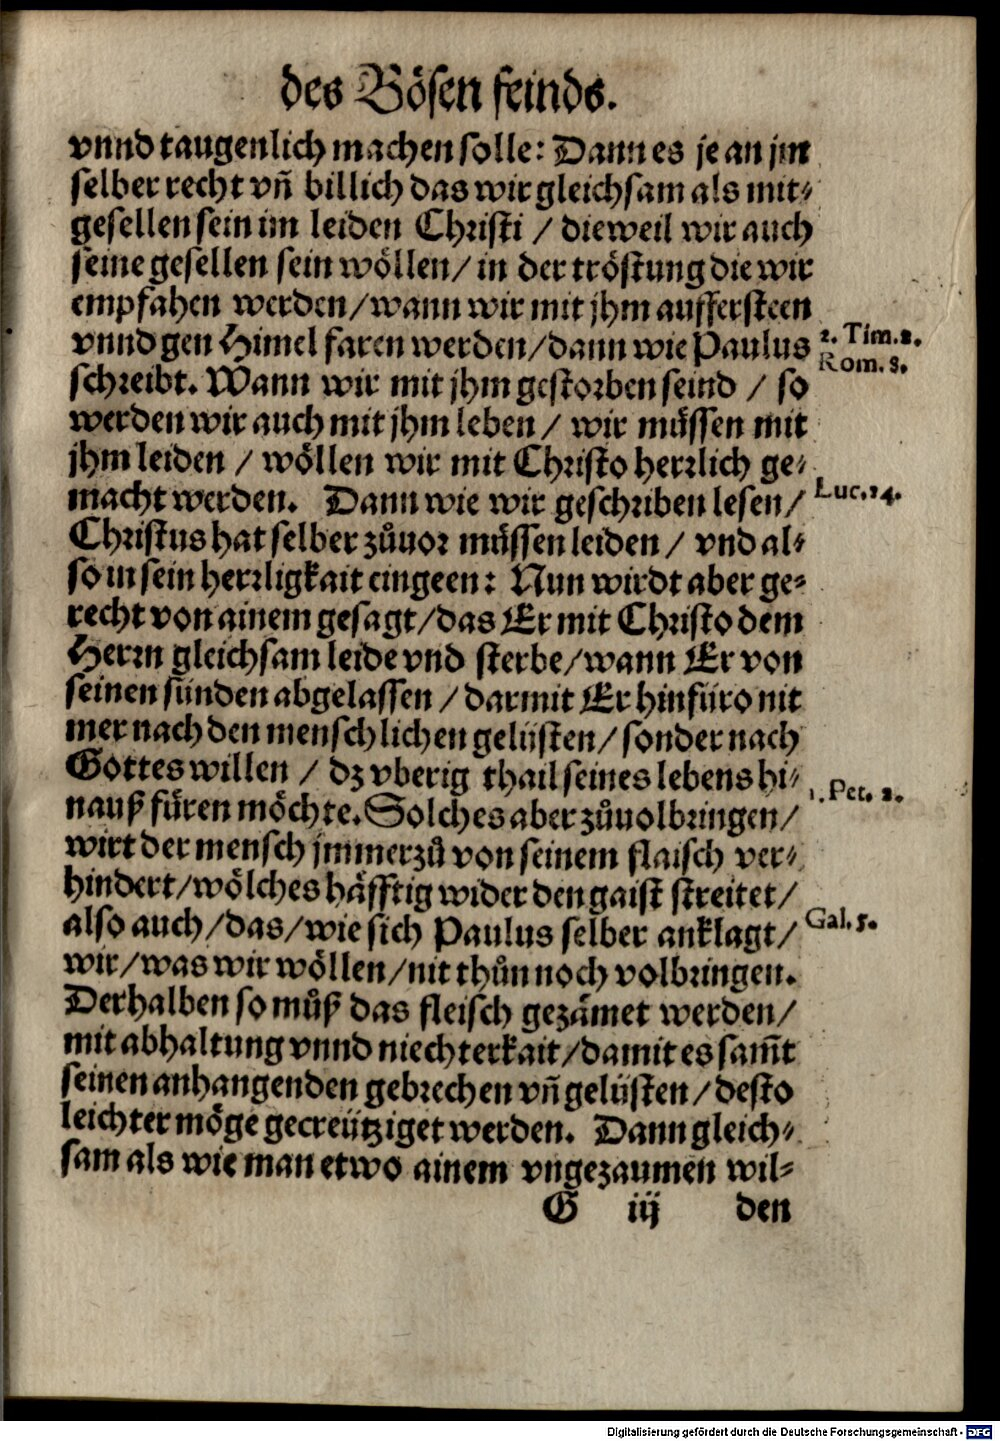 des Bösen feinds.
vnnd taugenlich machen solle: Dann es je an jm
selber recht vñ billich das wir gleichsam als mit⸗
gesellen sein im leiden Christi / dieweil wir auch
seine gesellen sein wöllen/ in der tröstung die wir
empfahen werden/wann wir mit jhm auffersteen
vnnd gen Himel faren werden/dann wie Paulus
2. Tim. 2.
Rom. 8.
schreibt. Wann wir mit jhm gestorben seind / so
werden wir auch mit jhm leben / wir müssen mit
jhm leiden / wöllen wir mit Christo herrlich ge⸗
macht werden. Dann wie wir geschriben lesen/
Luc. 24.
Christus hat selber zůuor müssen leiden / vnd al⸗
so in sein herrligkait eingeen: Nun wirdt aber ge⸗
recht von ainem gesagt/das Er mit Christo dem
Herrn gleichsam leide vnd sterbe/wann Er von
seinen sünden abgelassen / darmit Er hinfüro nit
mer nach den menschlichen gelüsten/ sonder nach
Gottes willen / dz vberig thail seines lebens hi⸗
1. Pet. 2.
nauß füren möchte. Solches aber zůuolbringen/
wirt der mensch jmmerzů von seinem flaisch ver⸗
hindert/wölches häfftig wider den gaist streitet/
also auch/das/wie sich Paulus selber anklagt/
Gal. 5.
wir/was wir wöllen/nit thůn noch volbringen.
Derhalben so můß das fleisch gezämet werden/
mit abhaltung vnnd niechterkait/damit es sam̃t
seinen anhangenden gebrechen vñ gelüsten/desto
leichter möge gecreütziget werden. Dann gleich⸗
sam als wie man etwo ainem vngezaumen wil⸗
G iij den
Digitalisierung gefördert durch die Deutsche Forschungsgemeinschaft - DFG